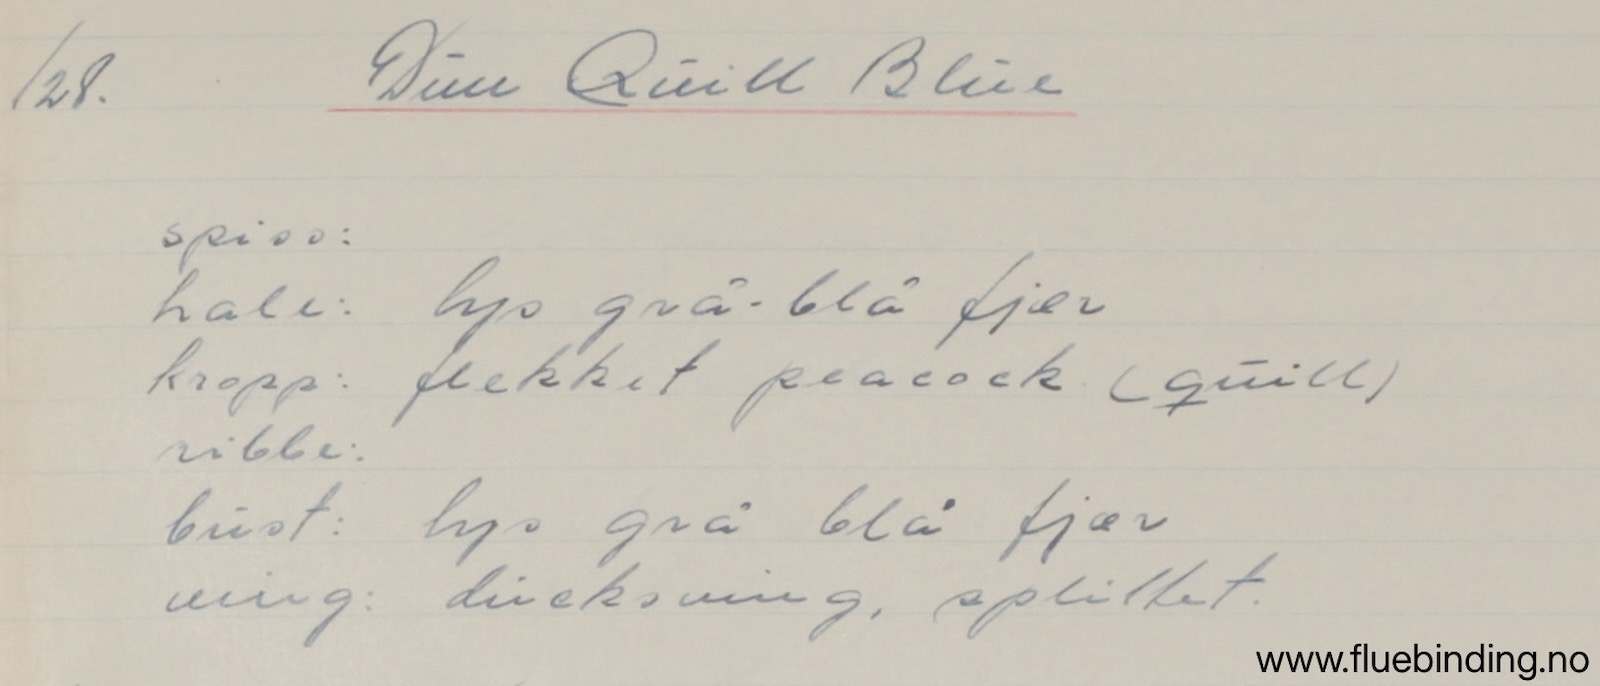 128. Dun Quill Blue
spiss:
hale: lys grå-blå fjær
kropp: flekket peacock (quill)
ribbe:
bust: lys grå blå fjær
ving: ducksving, splittet.
www.fluebinding.no